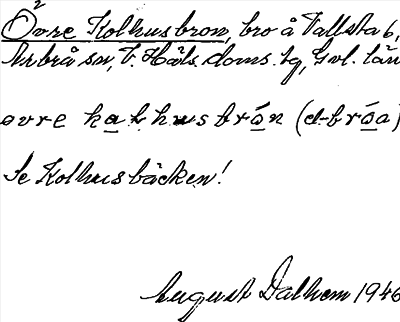 Övre Kolhusbron, bro å Vallsta 6,
Arbrå sn, V. Häls. doms. tg, Gvl. län
øvre kakhusbrón (d-bróa)
Se Kolhusbäcken!
August Dalhem 1946